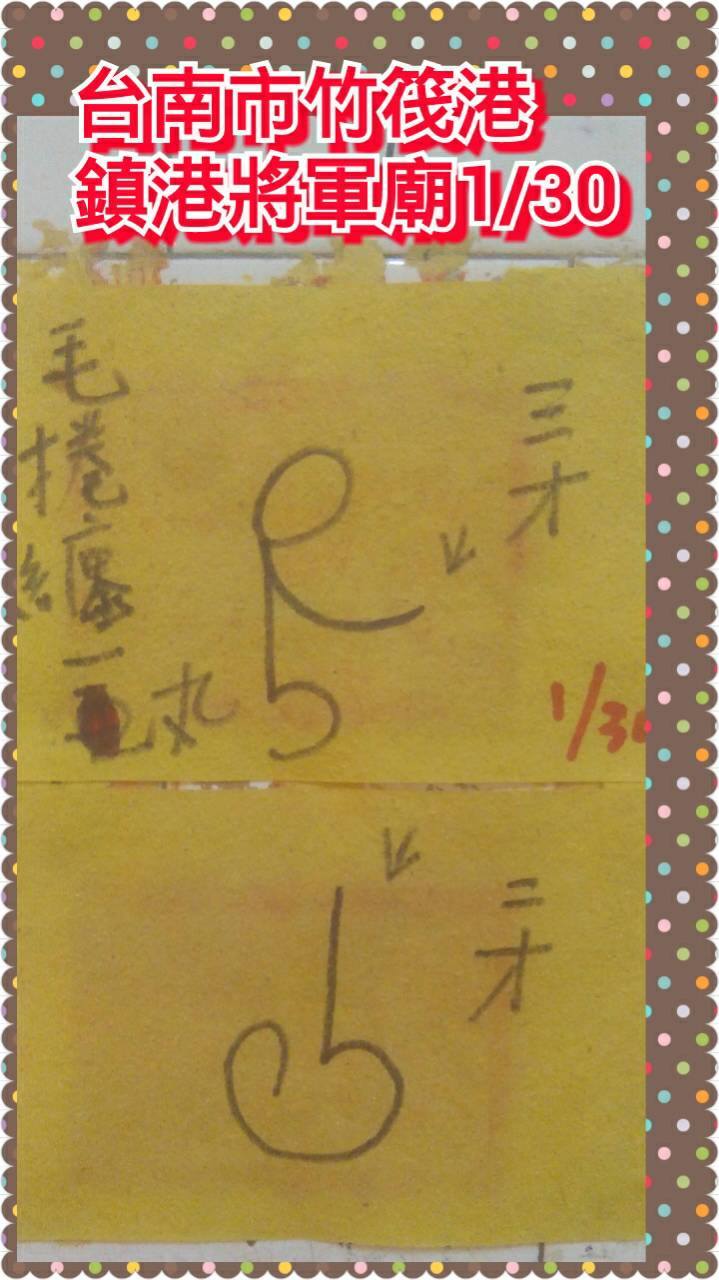 台南市竹筏港
鎮港將軍廟1/30
三才
毛捲纏一
丸
1/30
二才